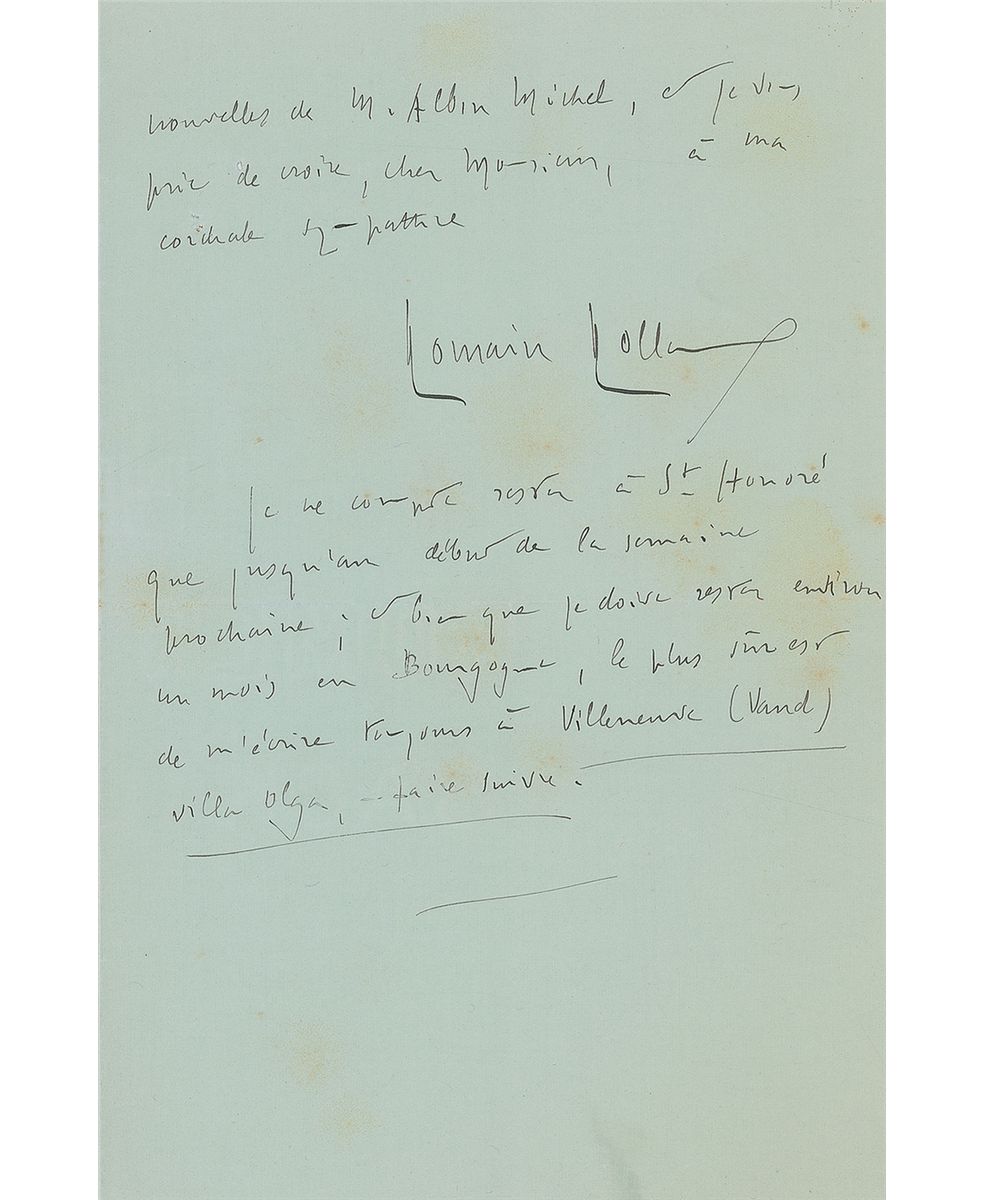 nouvelles de M. Albin Michel, et je vous
prie de croire, cher Monsieur, à ma
cordiale sympathie
Romain Rolland
Je ne compte rester à St Honoré
que jusqu'au début de la semaine
prochaine ; et bien que je doive rester environ
un mois en Bourgogne, le plus sûr est
de m'écrire toujours à Villeneuve (Vaud)
villa Olga, – faire suivre.